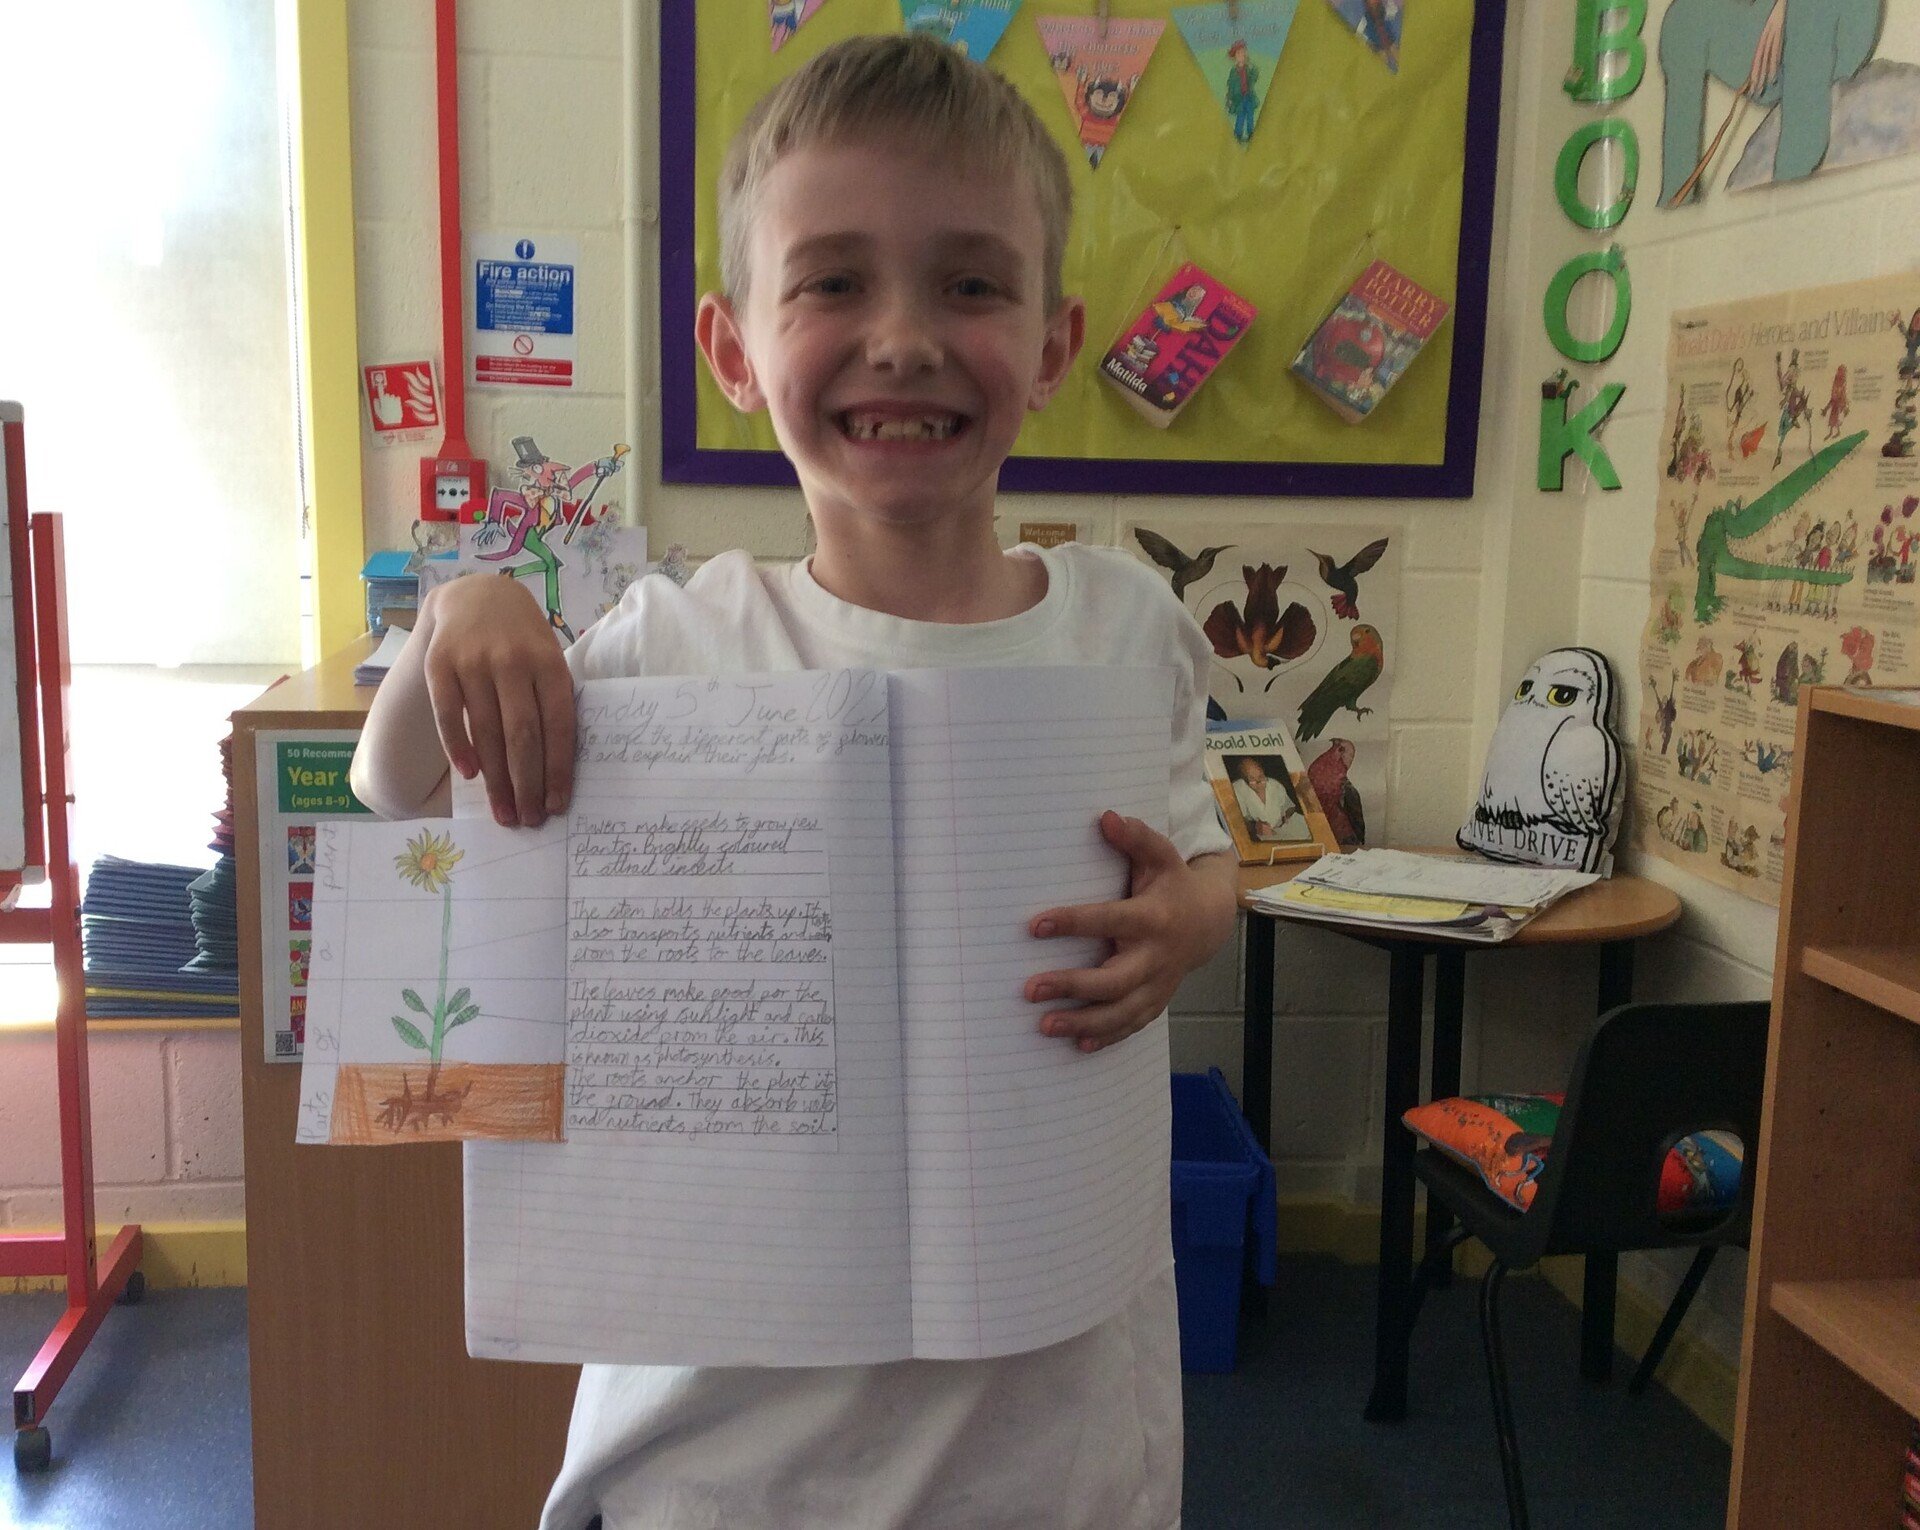 Fire action
DAHL
Matilda
HARRY
POTTER
BOOK
Roald Dahl's Heroes and Villains
Welcome
to the
Roald Dahl
PRIVET DRIVE
50 Recomme
Year 4
(ages 8-9)
onday 5th June 202
To name the different parts of flower
s and explain their jobs.
Parts of a plant
Flowers make seeds to grow new
plants. Brightly coloured
to attract insects
The stem holds the plants up. It
also transports nutrients and water
from the roots to the leaves.
The leaves make food for the
plant using sunlight and carbo
dioxide from the air. This
is known as photosynthesis.
The roots anchor the plant into
the ground. They absorb water
and nutrients from the soil.